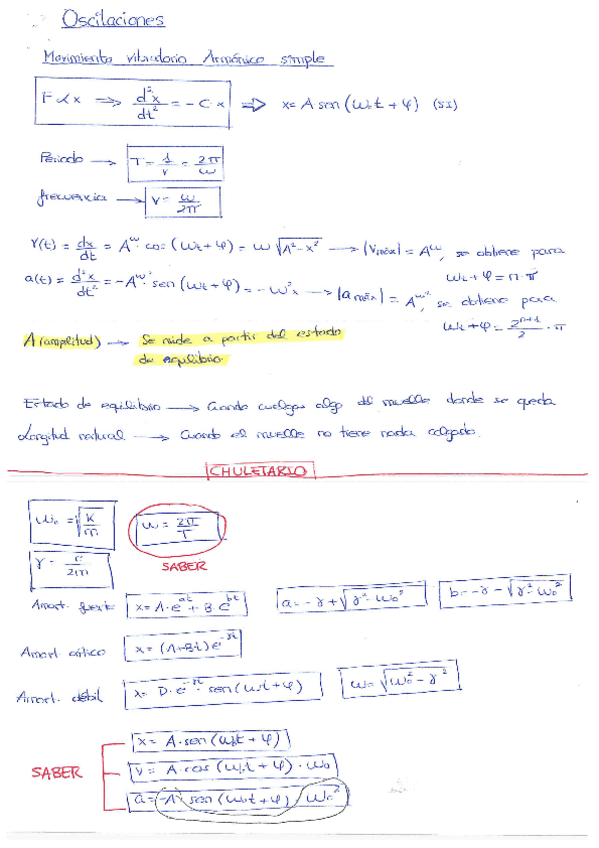 Oscilaciones
Movimiento vibratorio Armónico simple
F α x ⇒ d²x/dt² = -C·x ⇒ x = A sen(ω₀t + φ) (SI)
Periodo → T = 1/ν = 2π/ω
frecuencia → ν = ω/2π
v(t) = dx/dt = Aω·cos(ωt+φ) = ω√(A²-x²) → |vmáx| = Aω, se obtiene para
ωt+φ = n·π
a(t) = d²x/dt² = -Aω²·sen(ωt+φ) = -ω²x → |amáx| = Aω², se obtiene para
ωt+φ = 2n+1/2 · π
A(amplitud) → Se mide a partir del estado
de equilibrio.
Estado de equilibrio → Cuando cuelgas algo del muelle donde se queda
Longitud natural → Cuando el muelle no tiene nada colgado.
CHULETARIO
ω₀ = √(K/m) ω = 2π/T
SABER
γ = r/2m
Amort. fuerte x = A·e^at + B·e^bt a = -γ + √(γ²-ω₀²) b = -γ - √(γ²-ω₀²)
Amort. crítico x = (A+Bt)e^-γt
Amort. débil x = D·e^-γt · sen(ω₁t+φ) ω = √(ω₀²-γ²)
x = A·sen(ω₀t + φ)
SABER v = A·cos(ω₀t + φ)·ω₀
a = -A·sen(ω₀t+φ) ω₀²